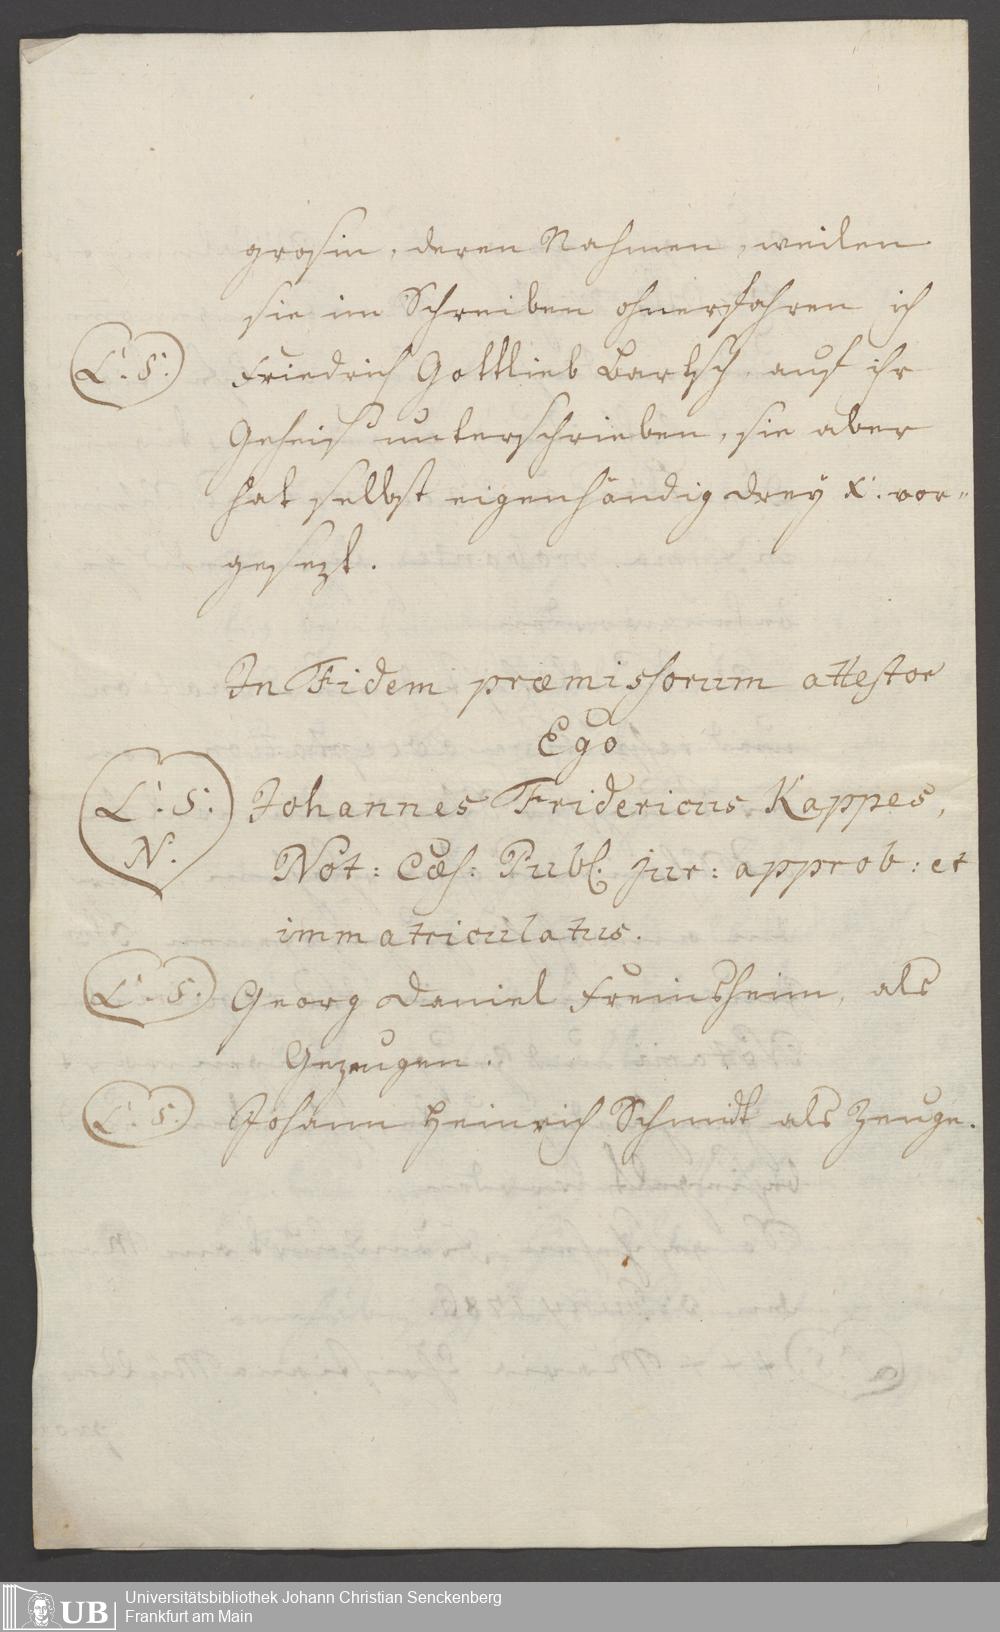 grosin, deren Nahmen, weilen
sie im Schreiben ohnerfahren ich
L. S. Friedrich Gottlieb Bartsch, auf ihr
Geheis unterschrieben, sie aber
hat selbst eigenhändig drey X. vor-
gesezt.
In Fidem præmissorum attestor
Ego
L. S. Johannes Fridericus Kappes,
N. Not: Cæs: Publ. jur: approb: et
immatriculatus.
L. S. Georg Daniel Freinsheim, als
Gezeugen.
L. S. Johann Heinrich Schmidt als Zeuge.
UB Universitätsbibliothek Johann Christian Senckenberg
Frankfurt am Main